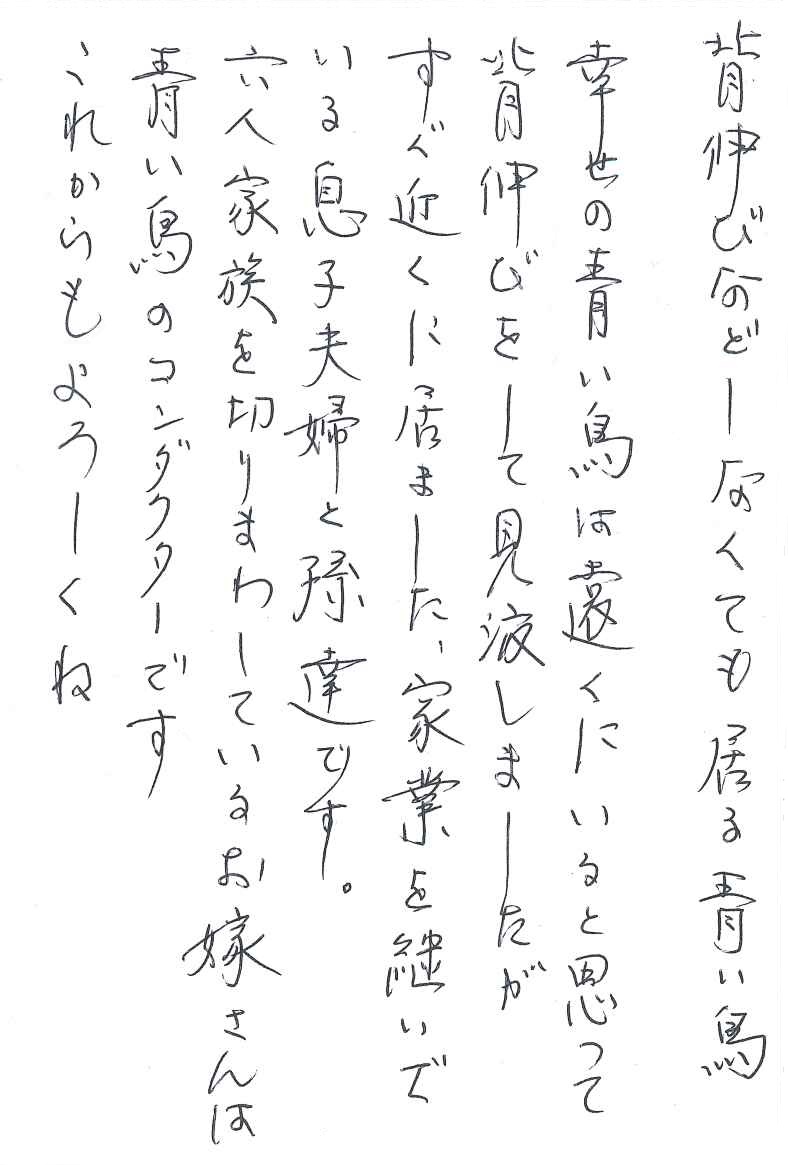 背伸びなどしなくても居る青い鳥
幸せの青い鳥は遠くにいると思って
背伸びをして見渡しましたが
すぐ近くに居ました、家業を継いで
いる息子夫婦と孫達です。
六人家族を切りまわしているお嫁さんは
青い鳥のコンダクターです
これからもよろしくね